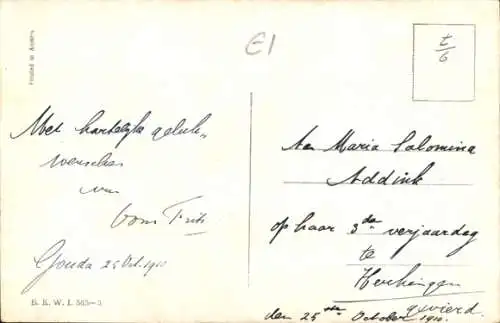 Printed in Austria
E1
t/6
Met hartelijke geluk=
wenschen
van
Oom Frits
Gouda 25 Oct. 1910
B. K. W. I. 565-3
Aan Maria Salomina
Addink
op haar 3de verjaardag
te
gevierd
den 25sten October 1910.